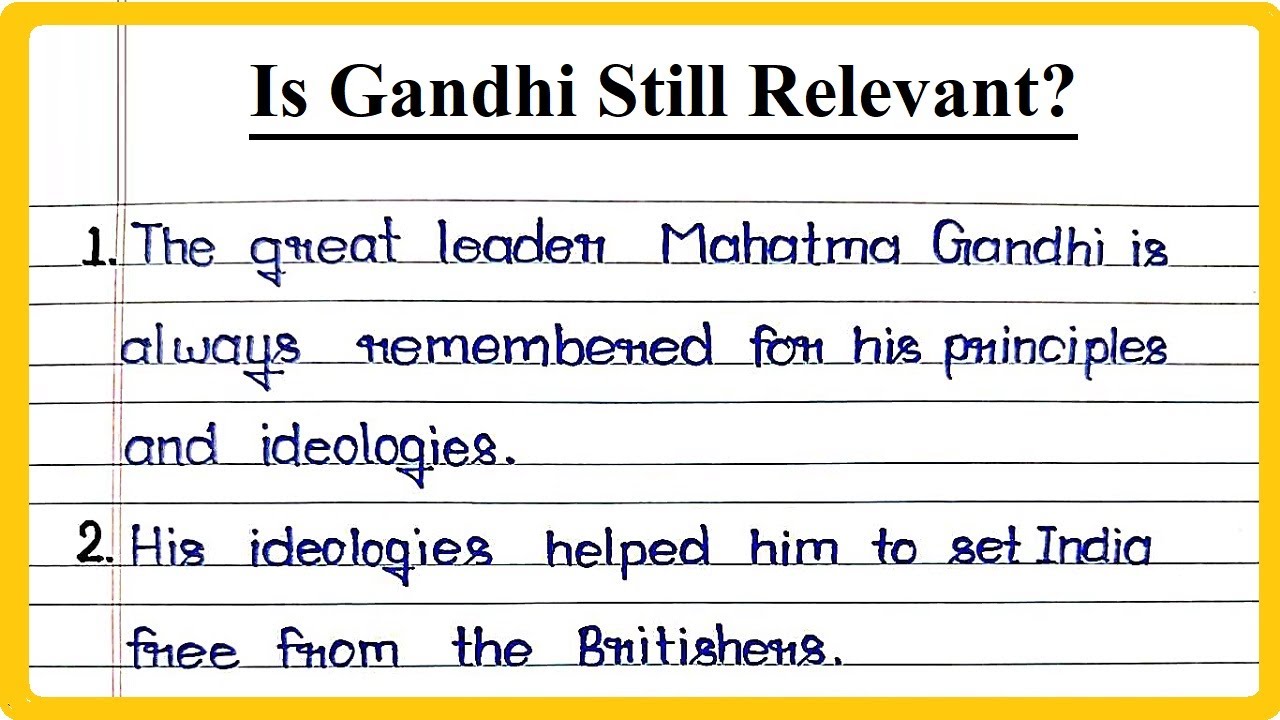 Is Gandhi Still Relevant?
1. The great leader Mahatma Gandhi is
always remembered for his principles
and ideologies.
2. His ideologies helped him to set India
free from the Britishers.